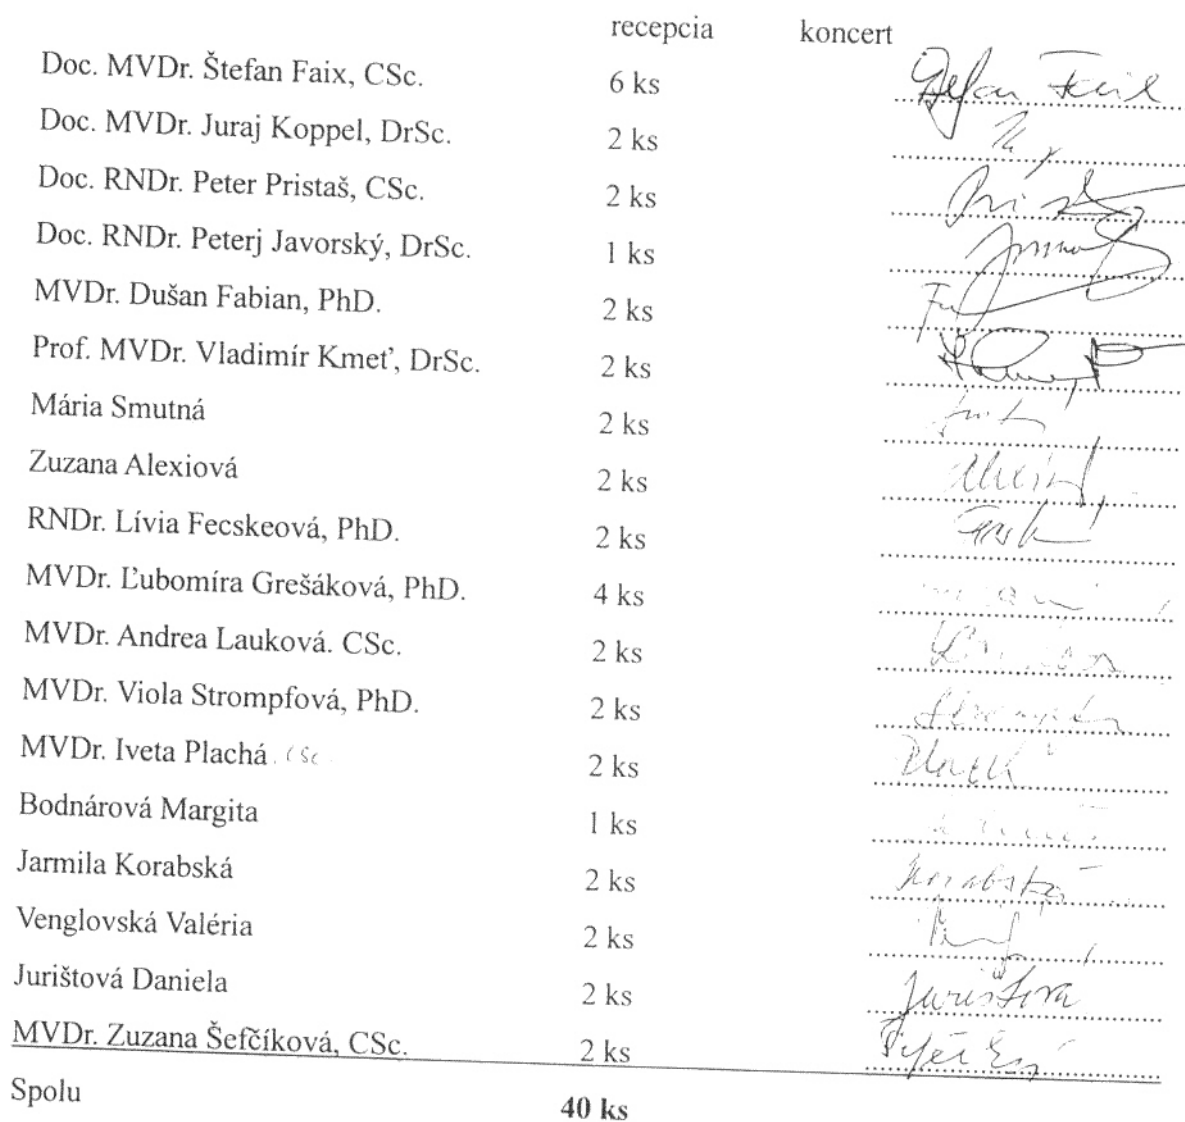 recepcia koncert
Doc. MVDr. Štefan Faix, CSc. 6 ks Štefan Faix
Doc. MVDr. Juraj Koppel, DrSc. 2 ks
Doc. RNDr. Peter Pristaš, CSc. 2 ks
Doc. RNDr. Peterj Javorský, DrSc. 1 ks
MVDr. Dušan Fabian, PhD. 2 ks
Prof. MVDr. Vladimír Kmeť, DrSc. 2 ks
Mária Smutná 2 ks
Zuzana Alexiová 2 ks
RNDr. Lívia Fecskeová, PhD. 2 ks
MVDr. Ľubomíra Grešáková, PhD. 4 ks
MVDr. Andrea Lauková. CSc. 2 ks
MVDr. Viola Strompfová, PhD. 2 ks
MVDr. Iveta Plachá, CSc 2 ks
Bodnárová Margita 1 ks
Jarmila Korabská 2 ks Korabská
Venglovská Valéria 2 ks
Jurištová Daniela 2 ks Jurištová
MVDr. Zuzana Šefčíková, CSc. 2 ks
Spolu 40 ks